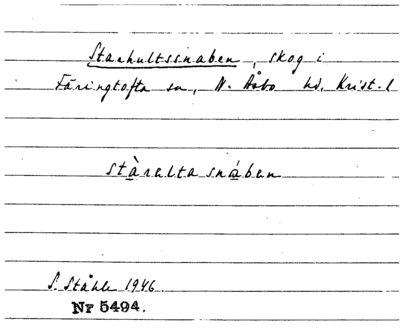 Starhultssnaben, skog i
Färingtofta sn, N. Åsbo hd, Krist. l
stàralta snában
S. Ståhle 1946
Nr 5494.